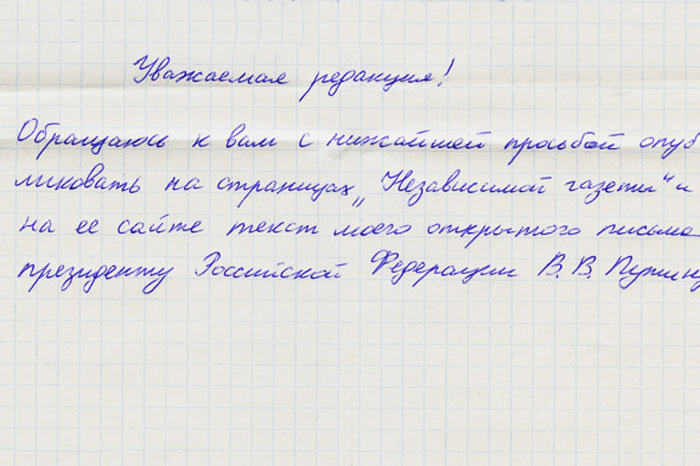 Уважаемая редакция!
Обращаюсь к вам с нижайшей просьбой опуб
ликовать на страницах „Независимой газеты“ и
на ее сайте текст моего открытого письма
президенту Российской Федерации В. В. Путину